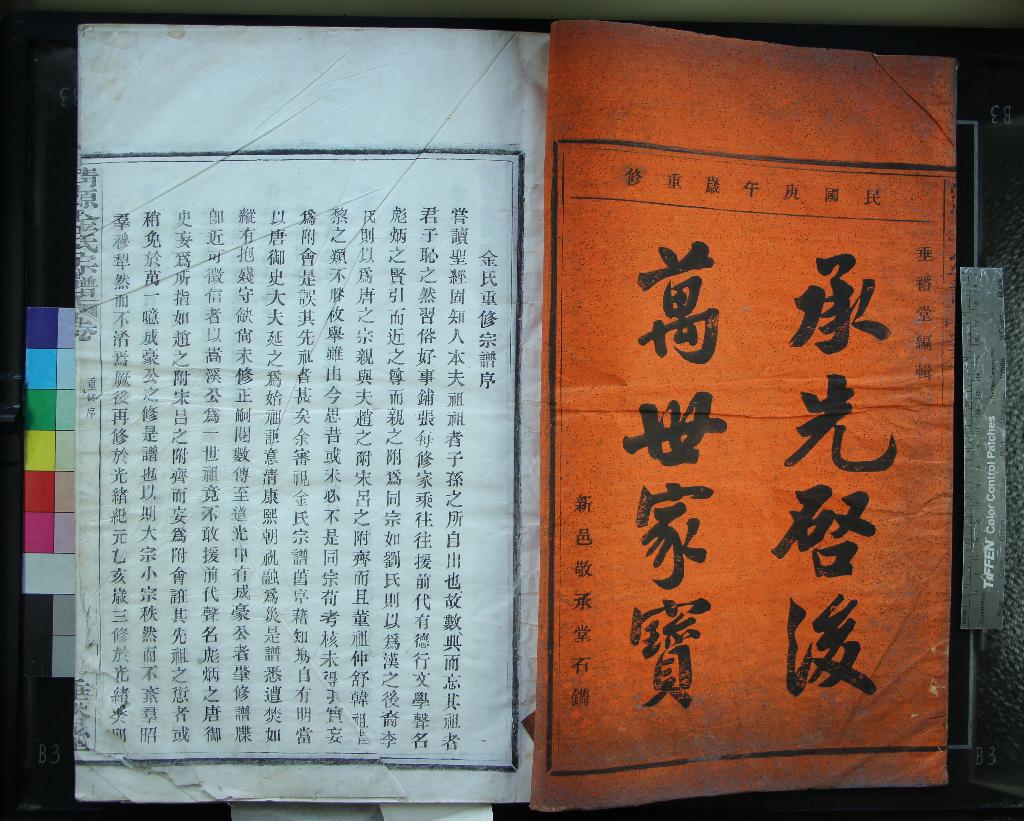 民國庚午歲重修
垂裕堂編輯
承先啓後
萬世家寶
新邑敬承堂石鐫
金氏重修宗譜序
嘗讀聖經固知人本夫祖祖者子孫之所自出也故數典而忘其祖者
君子恥之然習俗好事鋪張每修家乘往往援前代有德行文學聲名
彪炳之賢引而近之尊而親之附爲同宗如劉氏則以爲漢之後裔李
氏則以爲唐之宗親與夫趙之附宋呂之附齊而且董祖仲舒韓祖
黎之類不勝枚舉雖由今思昔或未必不是同宗苟考核未得其實妄
爲附會是誤其先祖者甚矣余審視金氏宗譜舊序藉知為自有明當
以唐御史大夫延之爲始祖詎意清康熙朝祝融爲災是譜悉遭焚如
縱有抱殘守缺尚未修正嗣閱數傳至道光中有成豪公者肇修譜牒
即近可徵信者以蒿溪公爲一世祖竟不敢援前代聲名彪炳之唐御
史妄爲所指如趙之附宋呂之附齊而妄爲附會誰其先祖之愆者或
稍免於萬一噫成豪公之修是譜也以期大宗小宗秩然而不紊羣昭
羣穆犁然而不淆焉厥後再修於光緒紀元乙亥歲三修於光緒癸卯
重修序
B3
B3
B3
B3
TIFFEN Color Control Patches